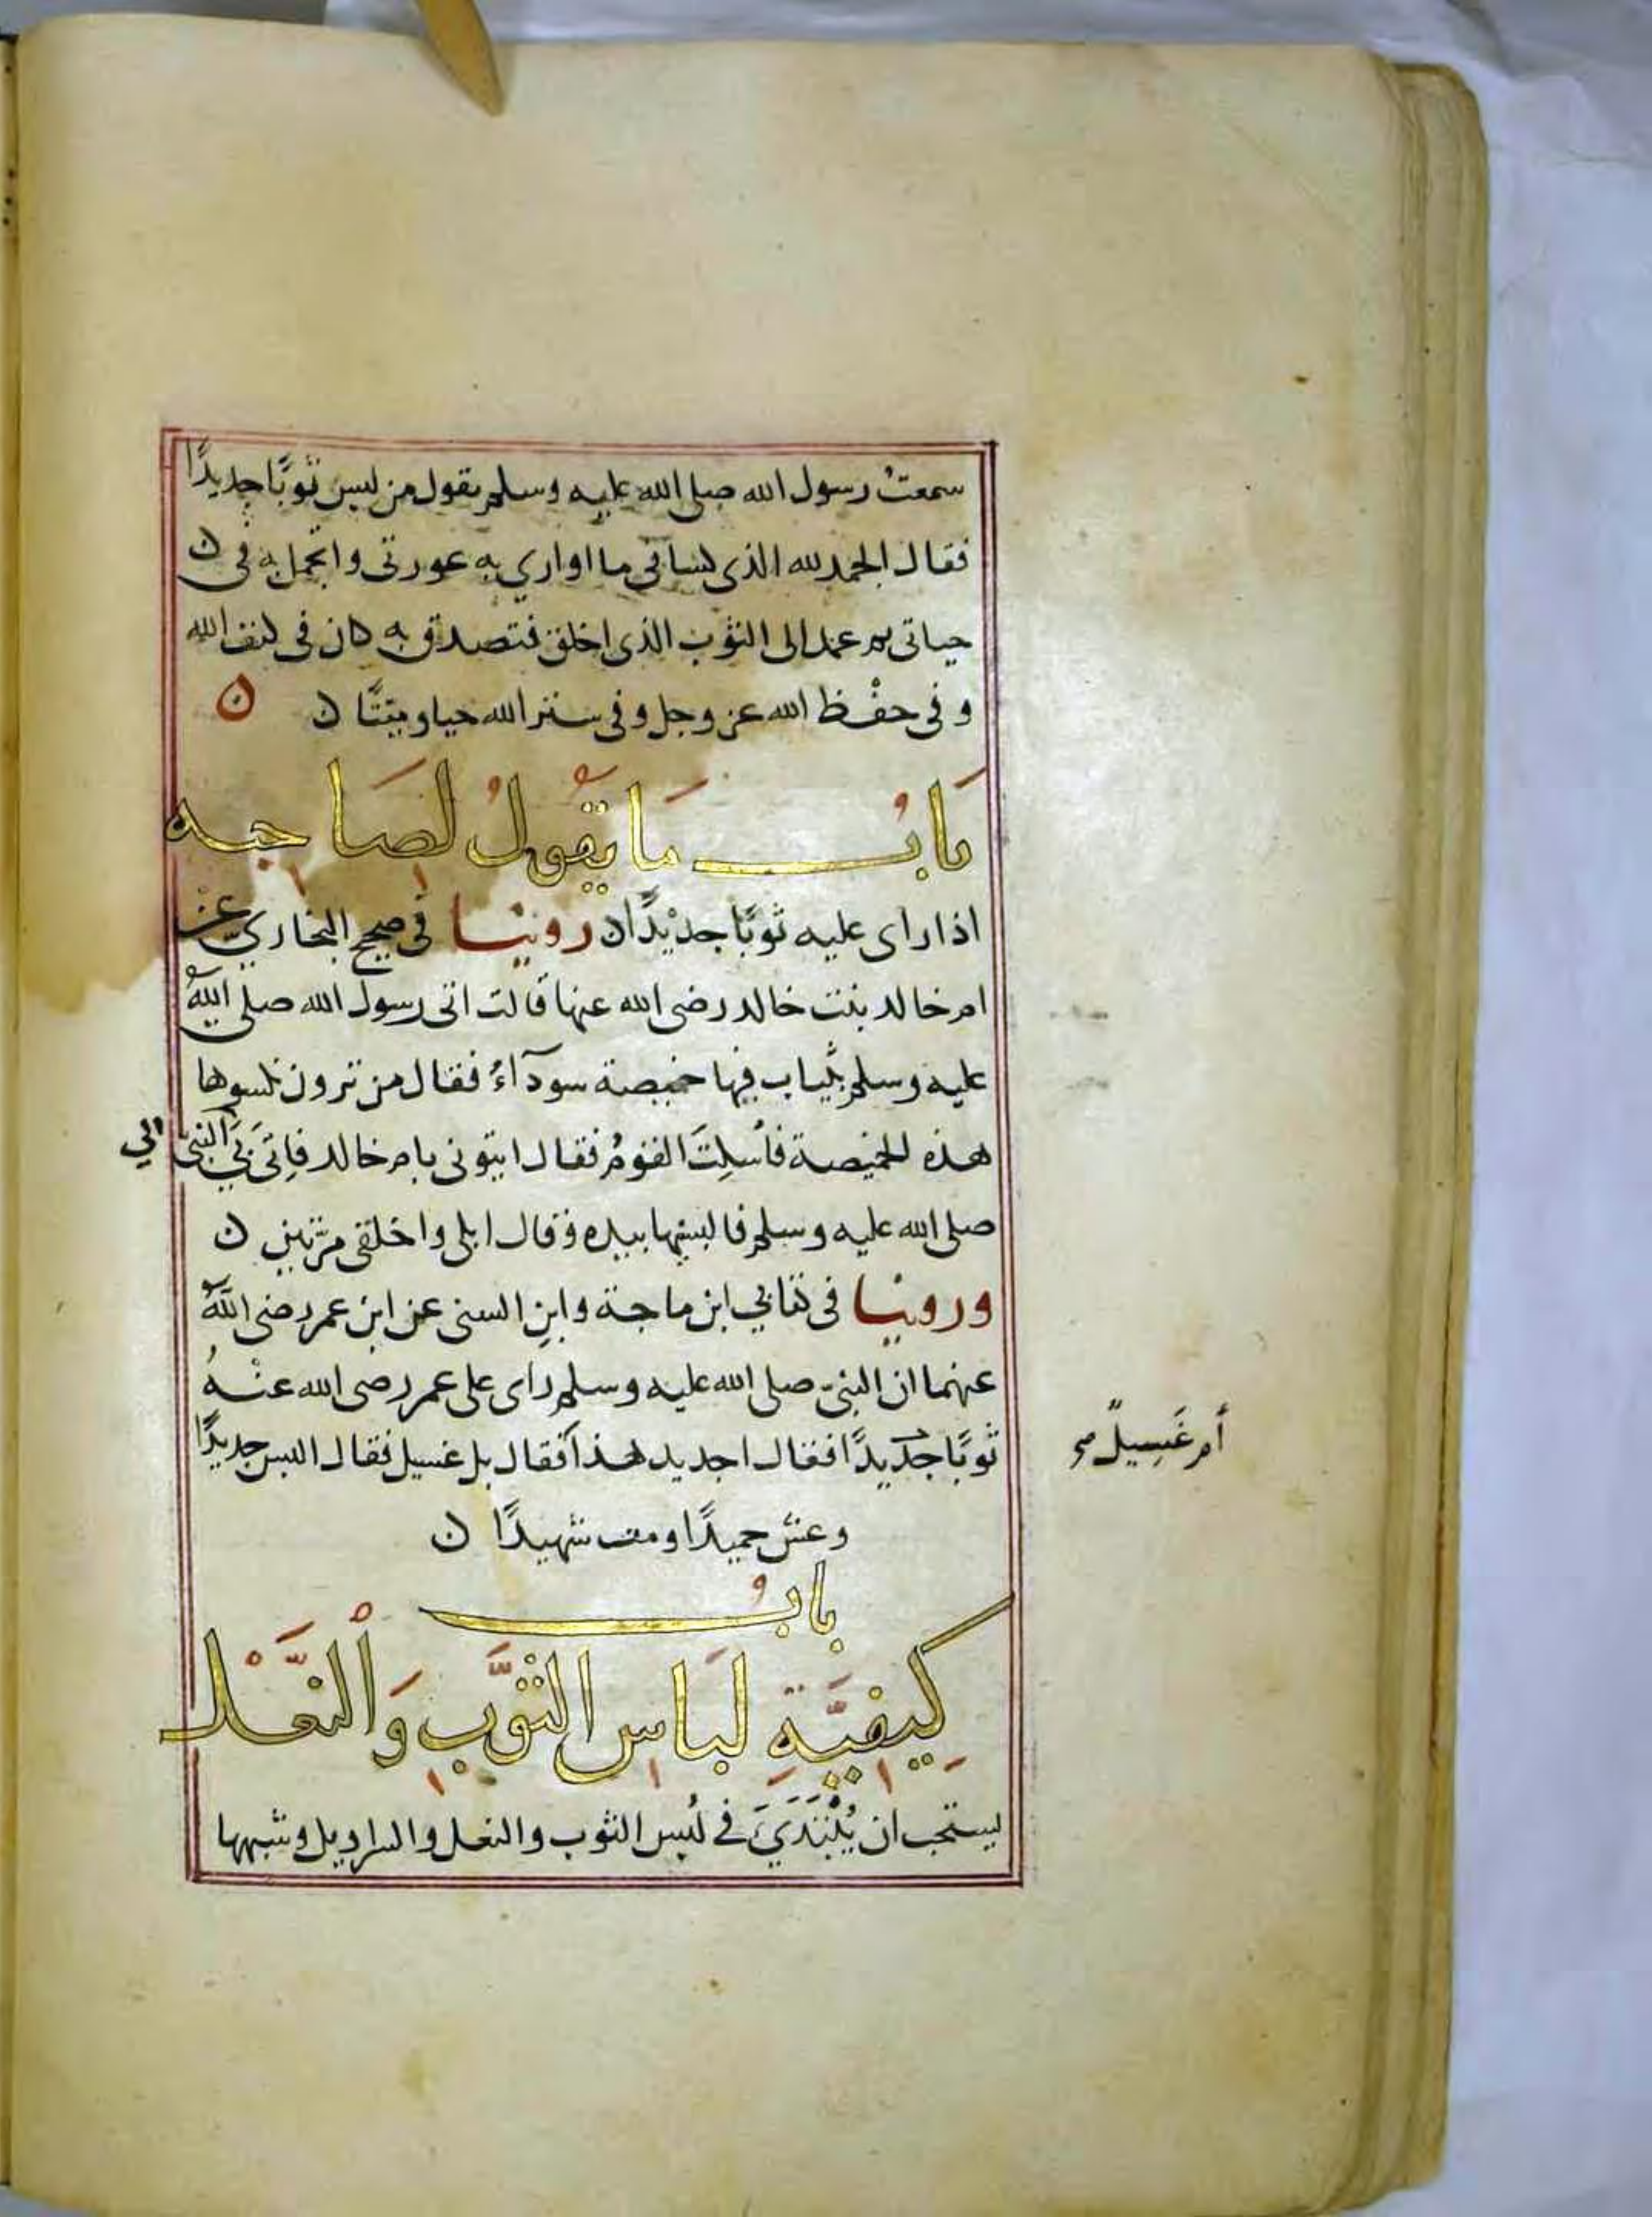 سمعتُ رسول الله صلى الله عليه وسلم يقول من لبس ثوبًا جديدًا
فقال الحمد لله الذى كسانى ما اوارى به عورتى واتجمل به فى ن
حياتى ثم عمد الى الثوب الذى اخلق فتصدق به كان فى كنف الله
وفى حفْظ الله عز وجل وفى ستر الله حيا وميتًا ن ن
بَابُ مَا يَقُولُ لصَاحِبِه
اذا راى عليه ثوبًا جديْدًا ن روينا فى صحيح البخاري عنْ
ام خالد بنت خالد رضى الله عنها قالت اتى رسول الله صلى اللهُ
عليه وسلم بثياب فيها خميصة سودآءُ فقال من ترون نكسوها
هذه الخميصة فأسكِتَ القومُ فقال ايتونى بام خالد فاتى بى النبى
الي
صلى الله عليه وسلم فالبسنيها بيده وقال ابلى واخلقى مرّتين ن
وروينا فى كتابي ابن ماجة وابنِ السنى عن ابن عمر رضى اللهُ
عنهما ان النبىّ صلى الله عليه وسلم راى على عمر رضى الله عنْهُ
ثوبًا جديدًا فقال اجديد هذا فقال بل غسيل فقال البس جديدًا
أم غَسِيلٌ صح
وعش حميدًا ومت شهيدًا ن
بابُ
كيفيَّةِ لبَاسِ الثَّوْبِ وَالنَّعْل
يستحب ان يُبْتَدَيَ فى لُبس الثوب والنعل والسراويل وشبهها